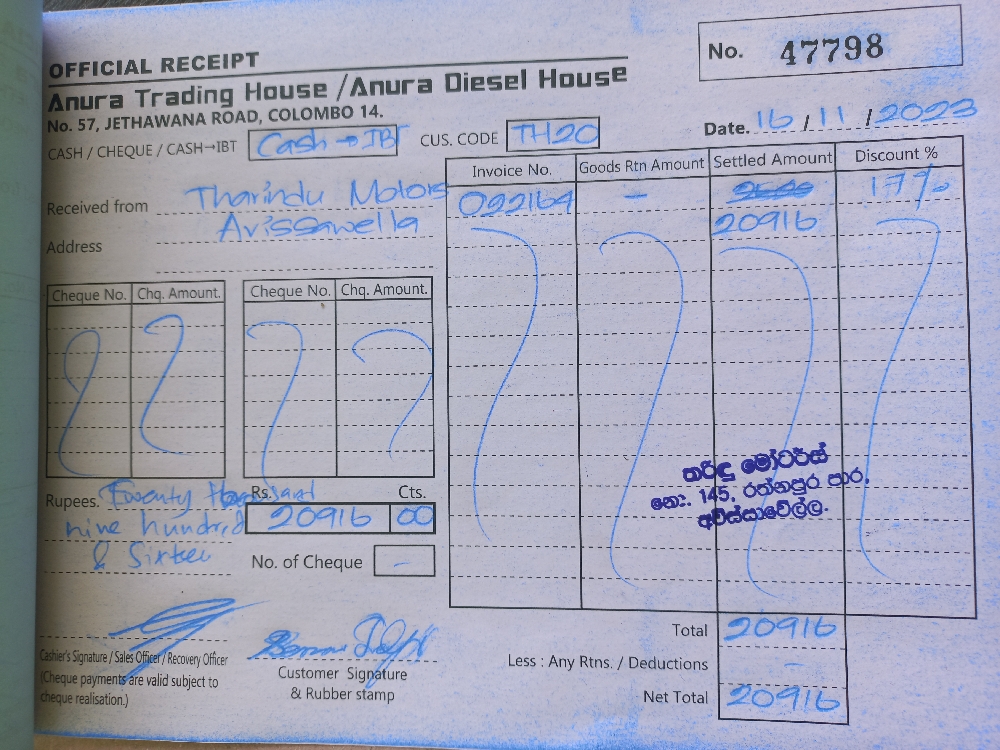 OFFICIAL RECEIPT
No. 47798
Anura Trading House / Anura Diesel House
No. 57, JETHAWANA ROAD, COLOMBO 14.
Date. 16 / 11 / 2023
CASH / CHEQUE / CASH→IBT Cash → IBT CUS. CODE TH20
Received from Tharindu Motors
Address Avissawella
Invoice No. Goods Rtn Amount Settled Amount Discount %
022164 - 17%
20916
Cheque No. Chq. Amount. Cheque No. Chq. Amount.
තරිඳු මෝටර්ස්
නො: 145, රත්නපුර පාර,
අවිස්සාවේල්ල.
Rupees. Twenty Thousand
nine hundred
& Sixteen
Rs. Cts.
20916 00
No. of Cheque -
Cashier's Signature / Sales Officer / Recovery Officer
(Cheque payments are valid subject to
cheque realisation.)
Customer Signature
& Rubber stamp
Total 20916
Less : Any Rtns. / Deductions -
Net Total 20916